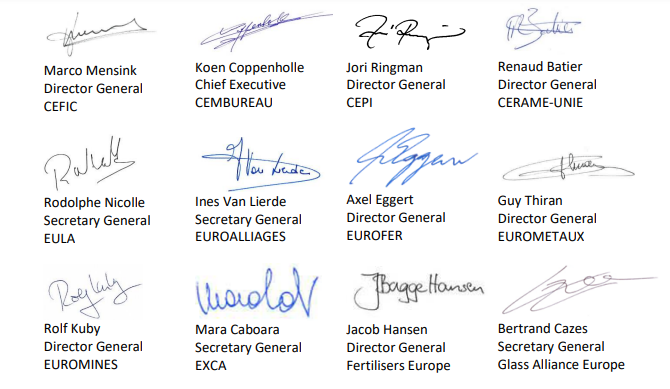 Marco Mensink
Director General
CEFIC
Koen Coppenholle
Chief Executive
CEMBUREAU
Jori Ringman
Director General
CEPI
Renaud Batier
Director General
CERAME-UNIE
Rodolphe Nicolle
Secretary General
EULA
Ines Van Lierde
Secretary General
EUROALLIAGES
Axel Eggert
Director General
EUROFER
Guy Thiran
Director General
EUROMETAUX
Rolf Kuby
Director General
EUROMINES
Mara Caboara
Secretary General
EXCA
JBaggeHansen
Jacob Hansen
Director General
Fertilisers Europe
Bertrand Cazes
Secretary General
Glass Alliance Europe